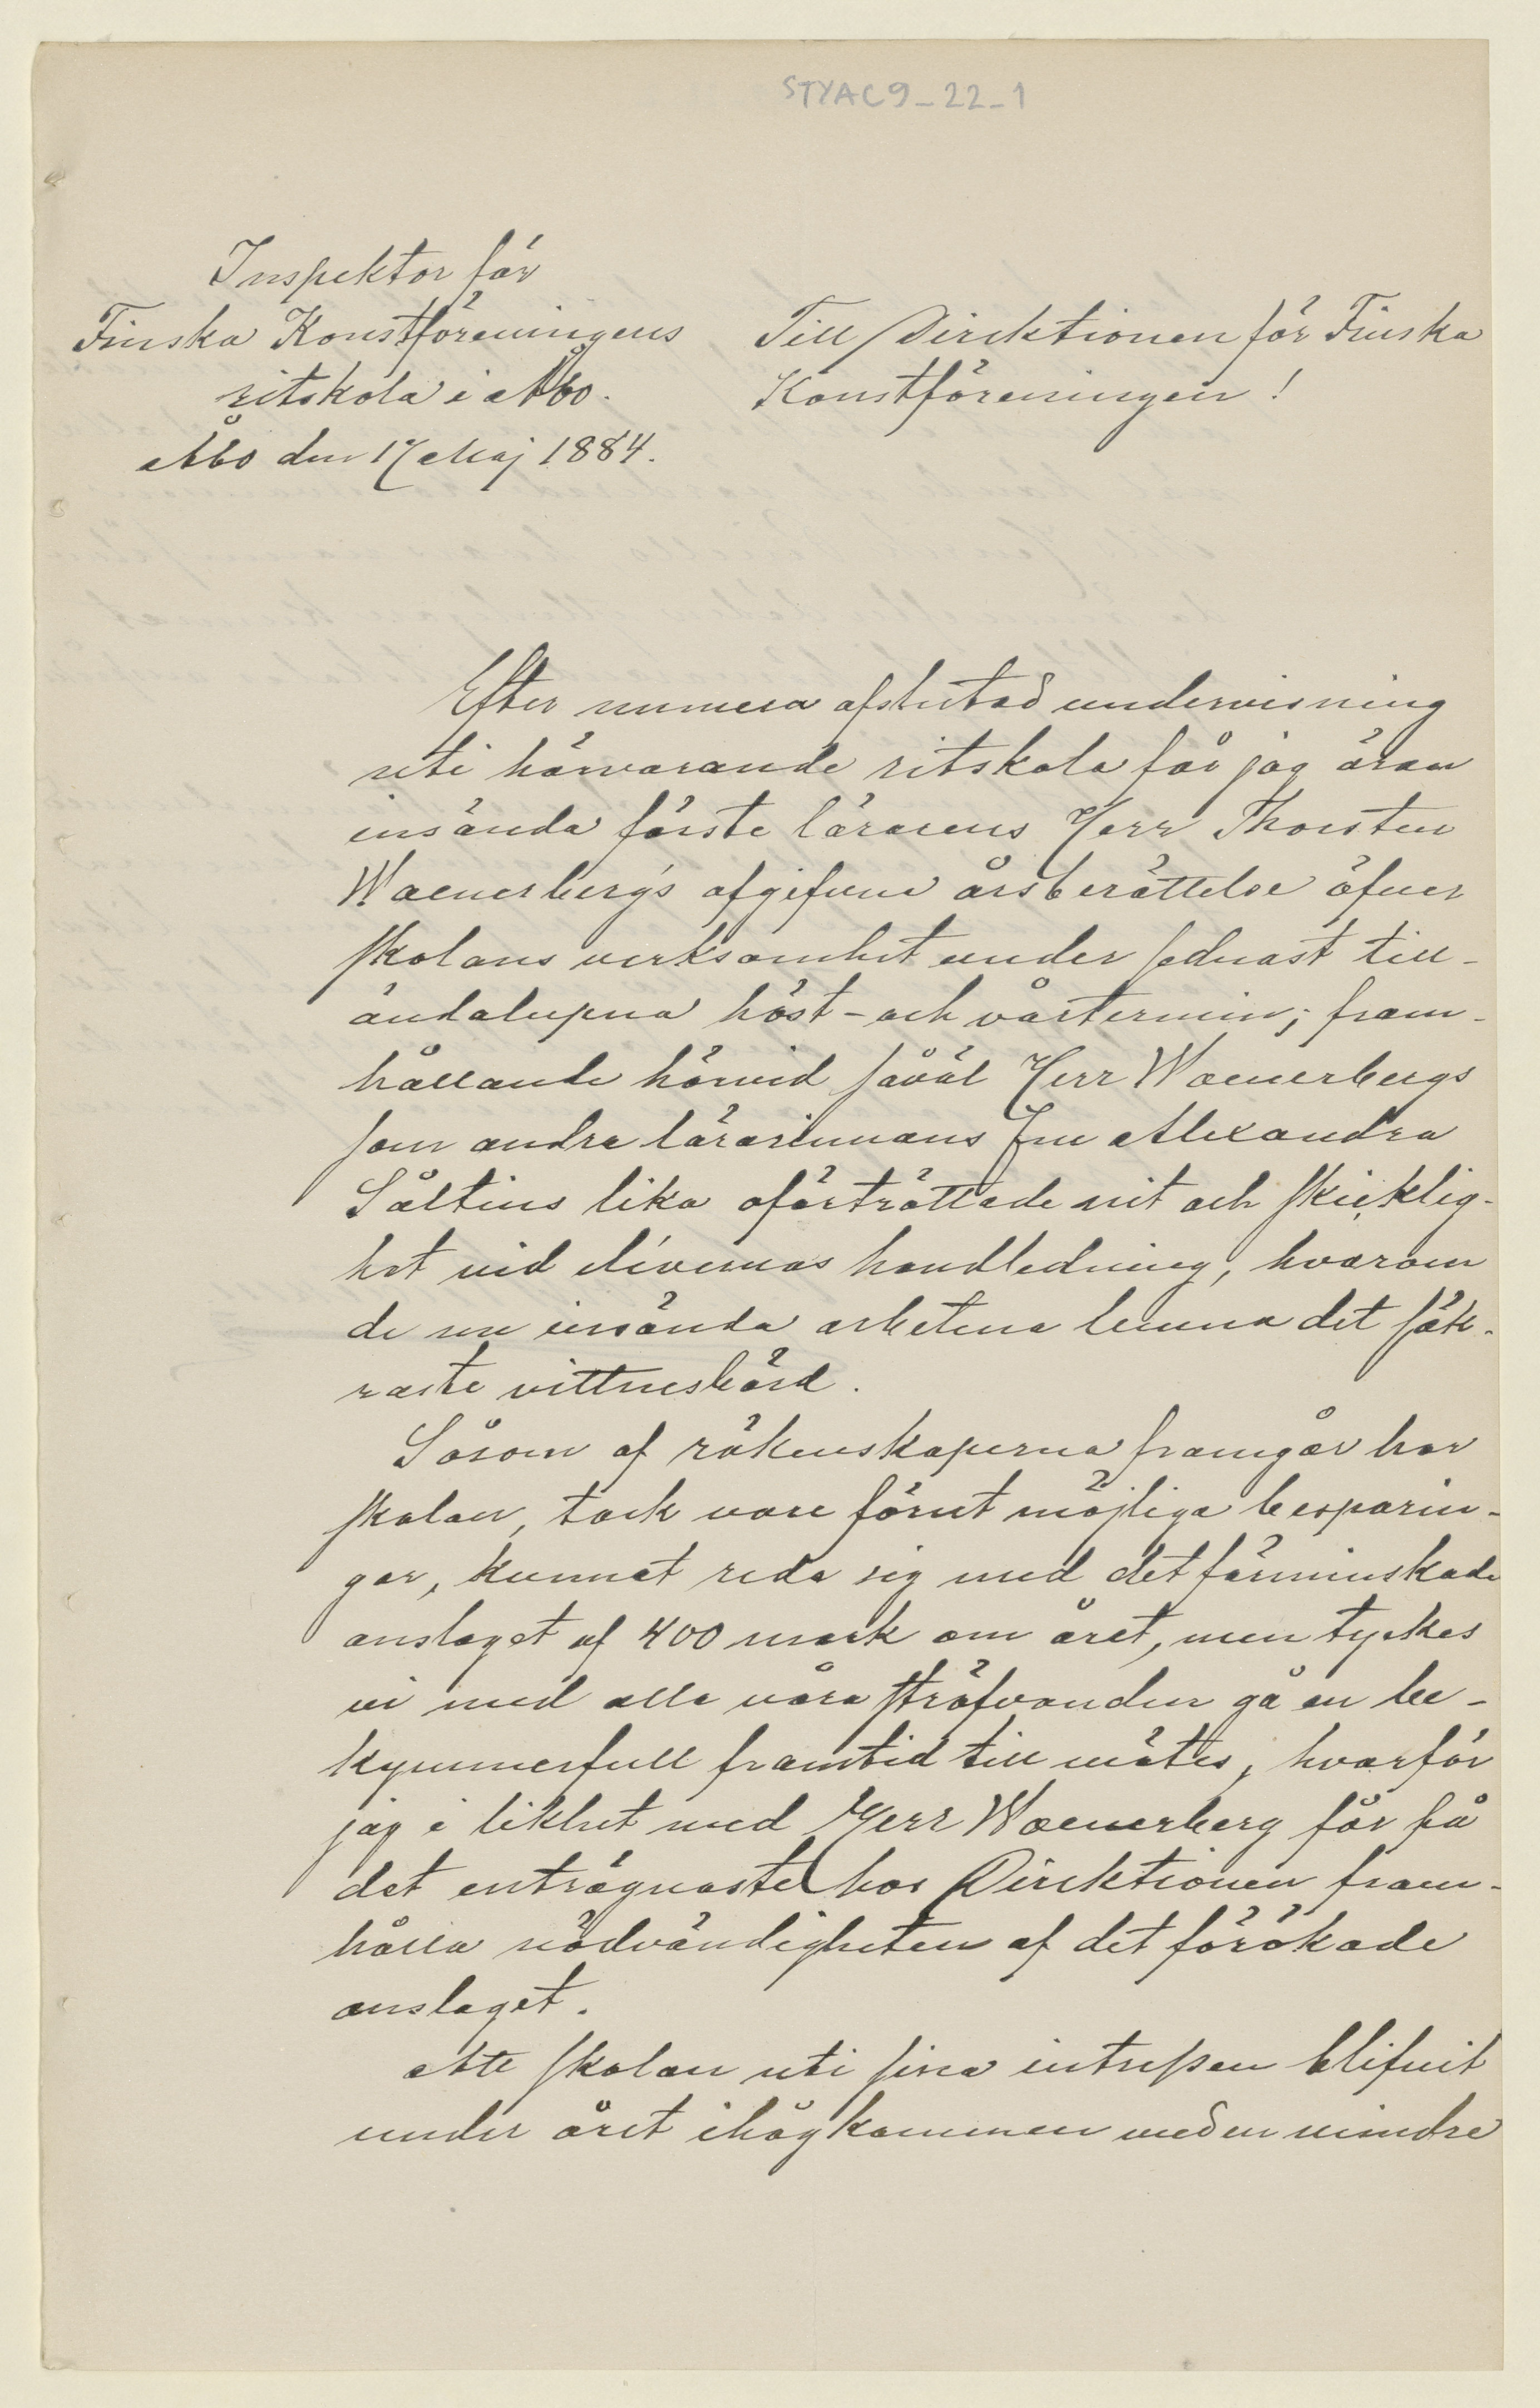 STYAC9_22_1
Inspektor för
Finska Konstföreningens
ritskola i Åbo.
Åbo den 17 Maj 1884.
Till Direktionen för Finska
Konstföreningen!
Efter numera afslutad undervisning
uti härvarande ritskola får jag äran
insända förste lärarens Herr Thorsten
Waenerberg's afgifna årsberättelse öfver
skolans verksamhet under sednast till-
ändalupna höst- och vårtermin; fram-
hållande härvid såväl Herr Waenerbergs
som andra lärarinnans Fru Alexandra
Såltins lika oförtröttade nit och skicklig-
het vid elévernas handledning, hvarom
de nu insända arbetena lemna det säk-
raste vittnesbörd.
Såsom af räkenskaperna framgår har
skolan, tack vare förut möjliga besparin-
gar, kunnat reda sig med det förminskade
anslaget af 400 mark om året, men tyckes
vi med alla våra sträfvanden gå en be-
kymmerfull framtid till mötes, hvarför
jag i likhet med Herr Waenerberg får på
det enträgnaste hos Direktionen fram-
hålla nödvändigheten af det förökade
anslaget.
Att skolan uti sina intressen blifvit
under året ihågkommen med en mindre